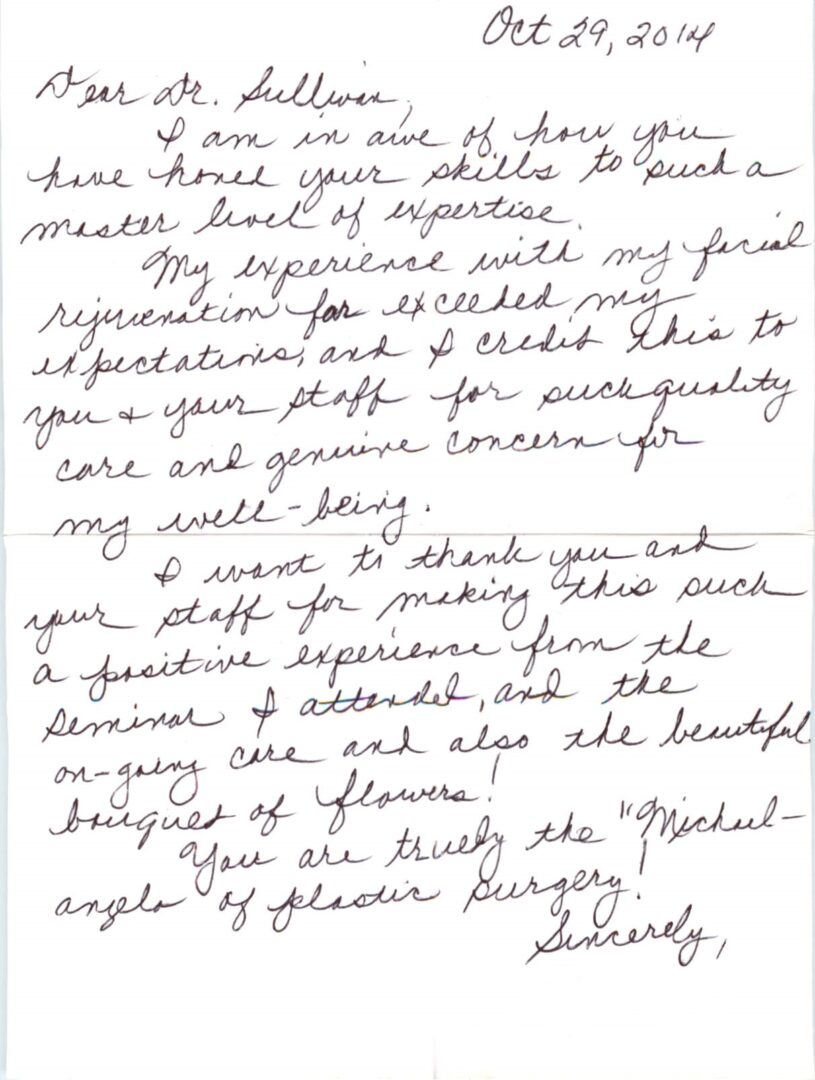 Oct 29, 2014
Dear Dr. Sullivan,
I am in awe of how you
have honed your skills to such a
master level of expertise.
My experience with my facial
rejuvenation far exceeded my
expectations, and I credit this to
you & your staff for such quality
care and genuine concern for
my well-being.
I want to thank you and
your staff for making this such
a positive experience from the
seminar I attended, and the
on-going care and also the beautiful
bouquet of flowers!
You are truely the "Michael-
angelo" of plastic surgery!
Sincerely,